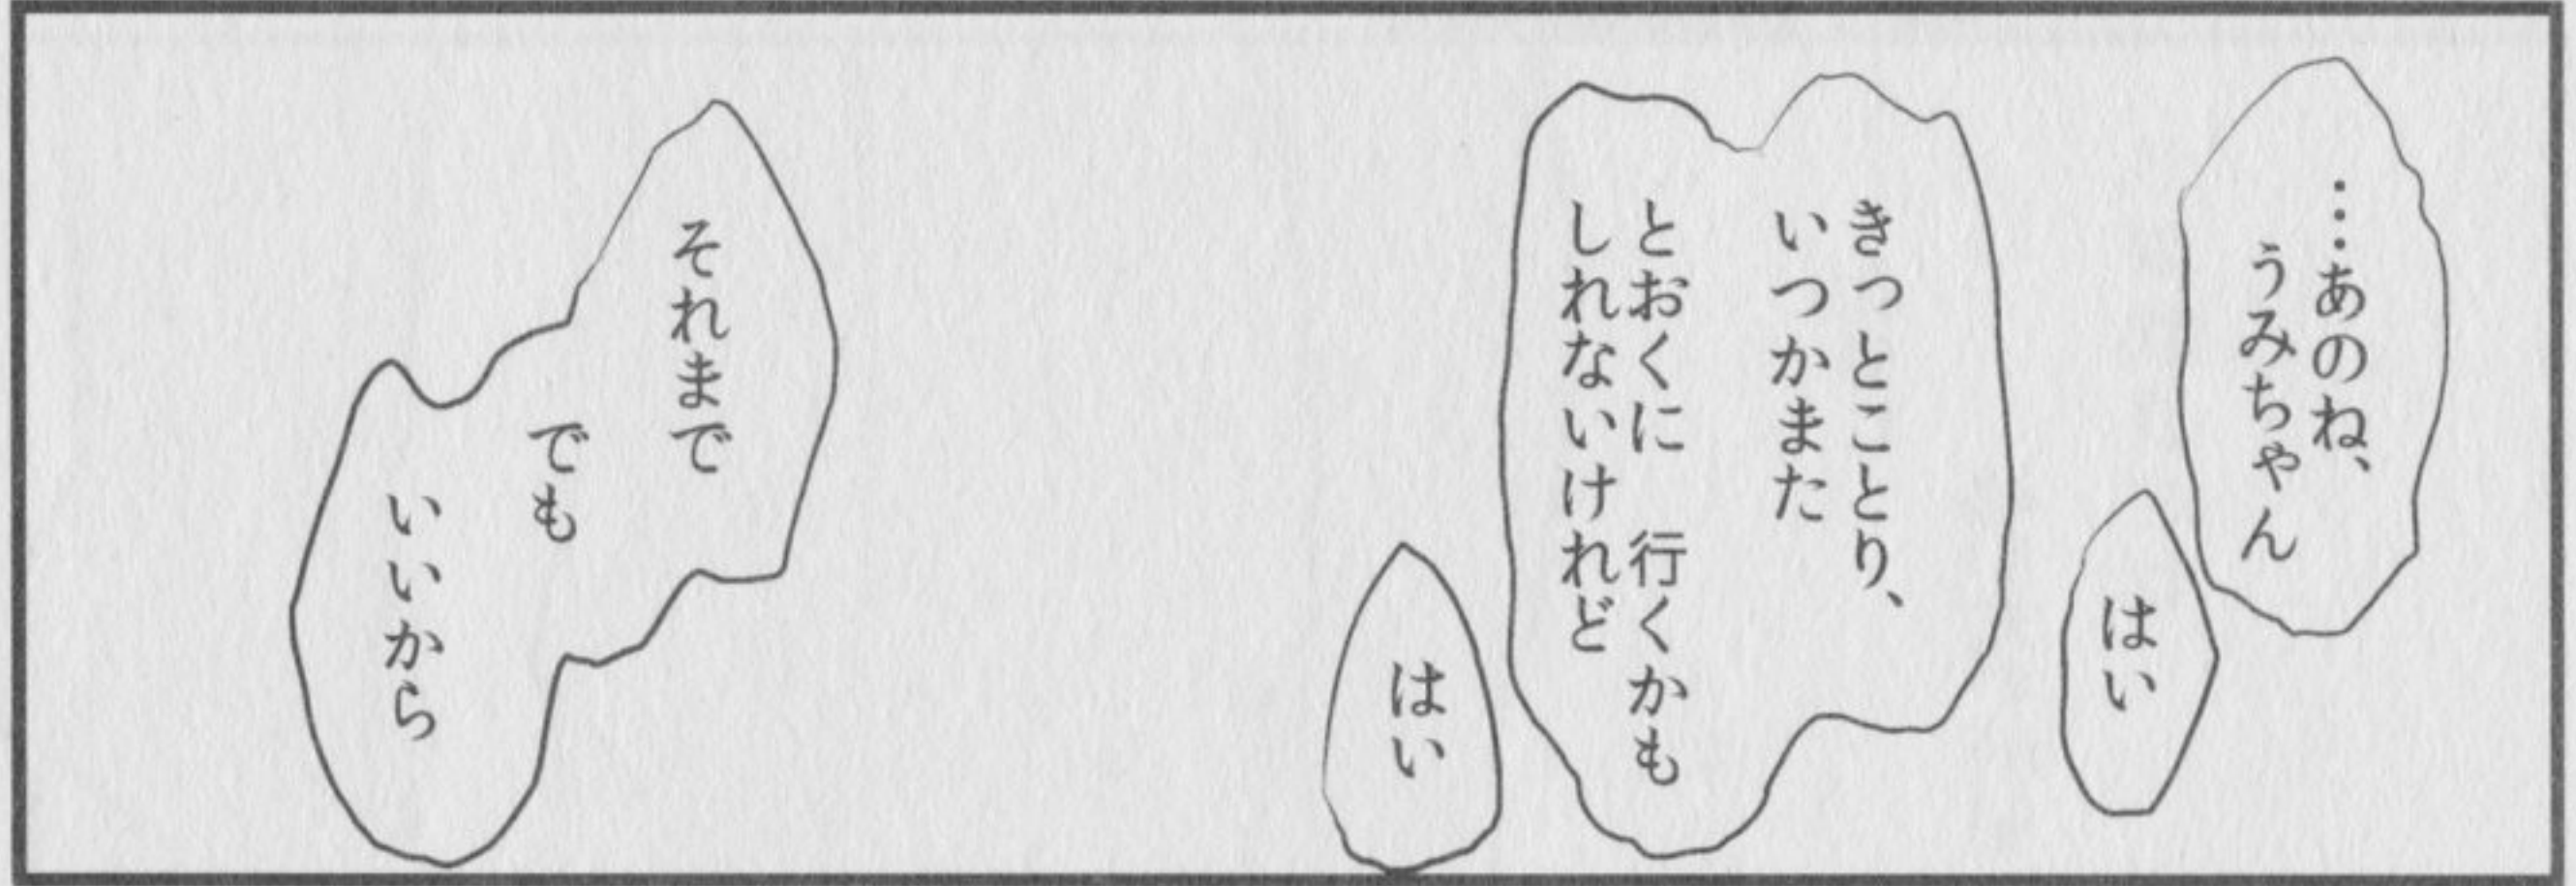 …あのね、
うみちゃん
はい
きっとことり、
いつかまた
とおくに　行くかも
しれないけれど
はい
それまで
でも
いいから